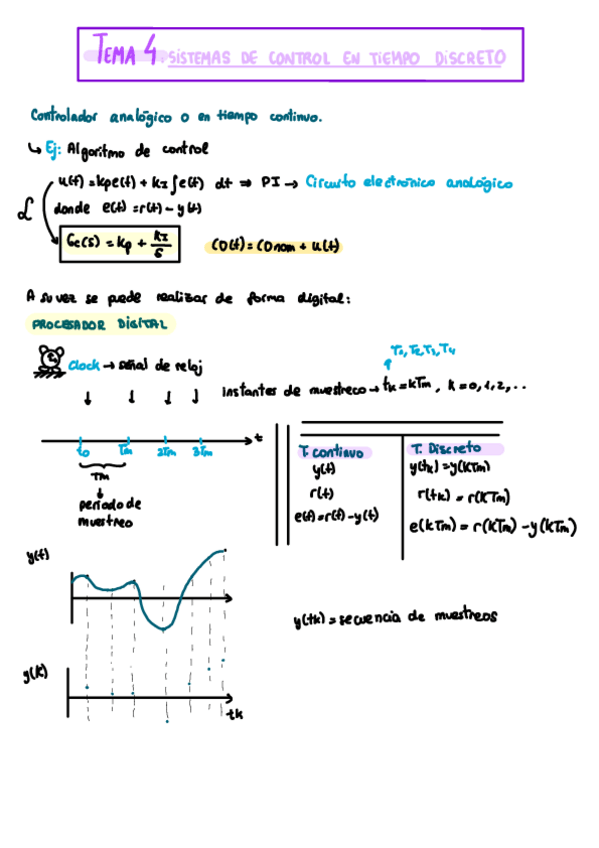 TEMA 4. SISTEMAS DE CONTROL EN TIEMPO DISCRETO
Controlador analógico o en tiempo continuo.
↳ Ej: Algoritmo de control
u(t) = kp e(t) + kI ∫e(t) dt ⇒ PI → Circuito electrónico analógico
donde e(t) = r(t) - y(t)
ℒ
Gc(s) = kp + kI/s
CO(t) = COnom + u(t)
A su vez se puede realizar de forma digital:
PROCESADOR DIGITAL
Clock → señal de reloj
T1, T2, T3, T4
instantes de muestreo → tk = kTm, k = 0, 1, 2, ..
t0 Tm 2Tm 3Tm t
Tm
período de
muestreo
T. continuo T. Discreto
y(t) y(tk) = y(kTm)
r(t) r(tk) = r(kTm)
e(t) = r(t) - y(t) e(kTm) = r(kTm) - y(kTm)
y(t)
y(tk) = secuencia de muestreos
y(k)
tk